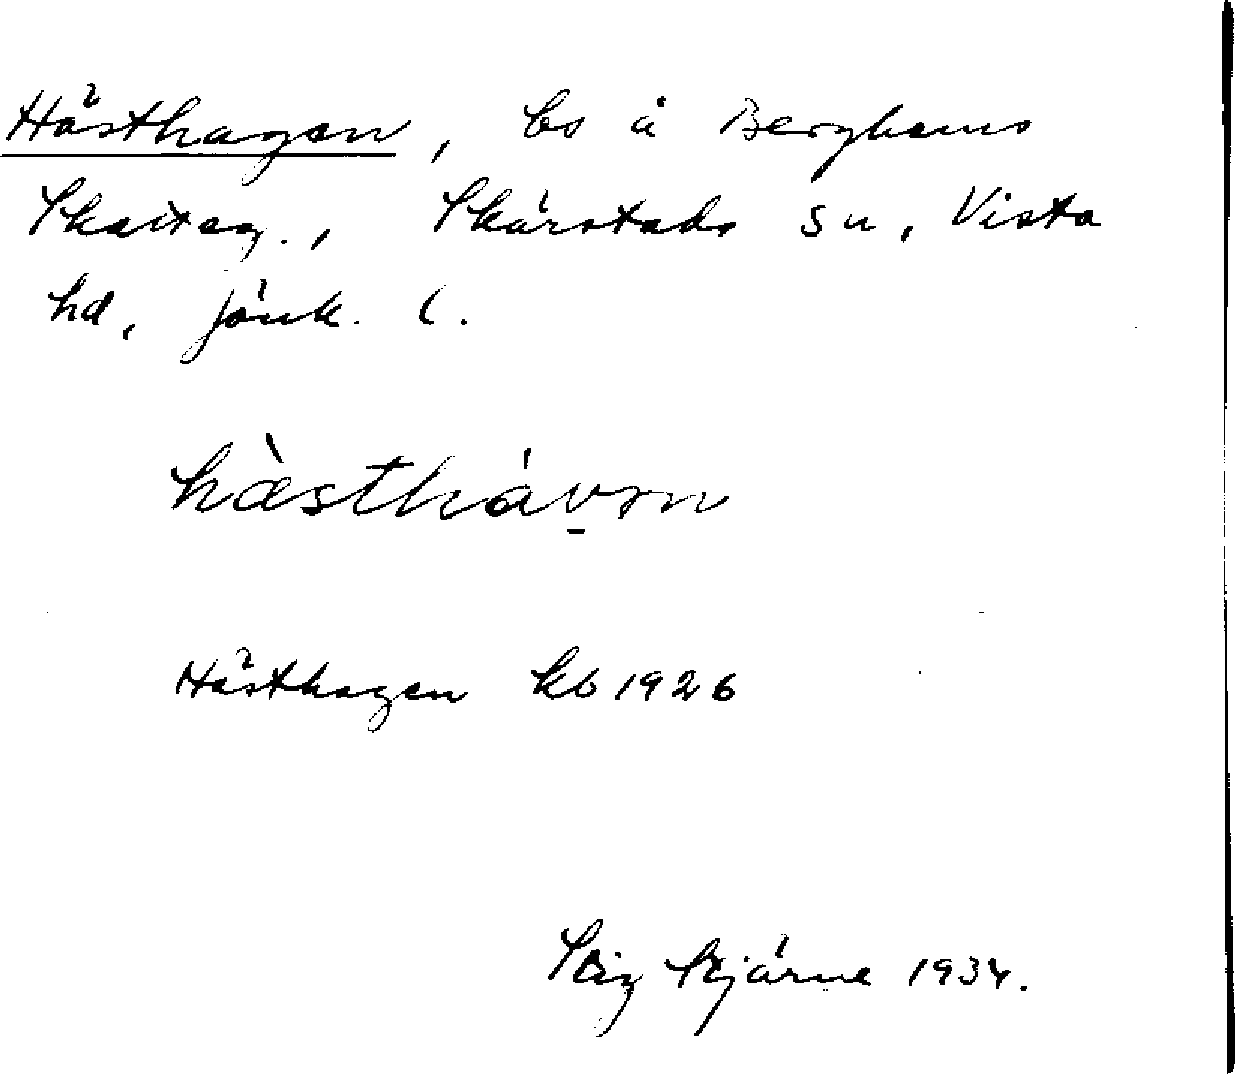 Hästhagen, bs å Berghems
Skatteg., Skärstads sn, Vista
hd, Jönk. l.
hàsthávən
Hästhagen kb 1926
Stig Stjärne 1934.